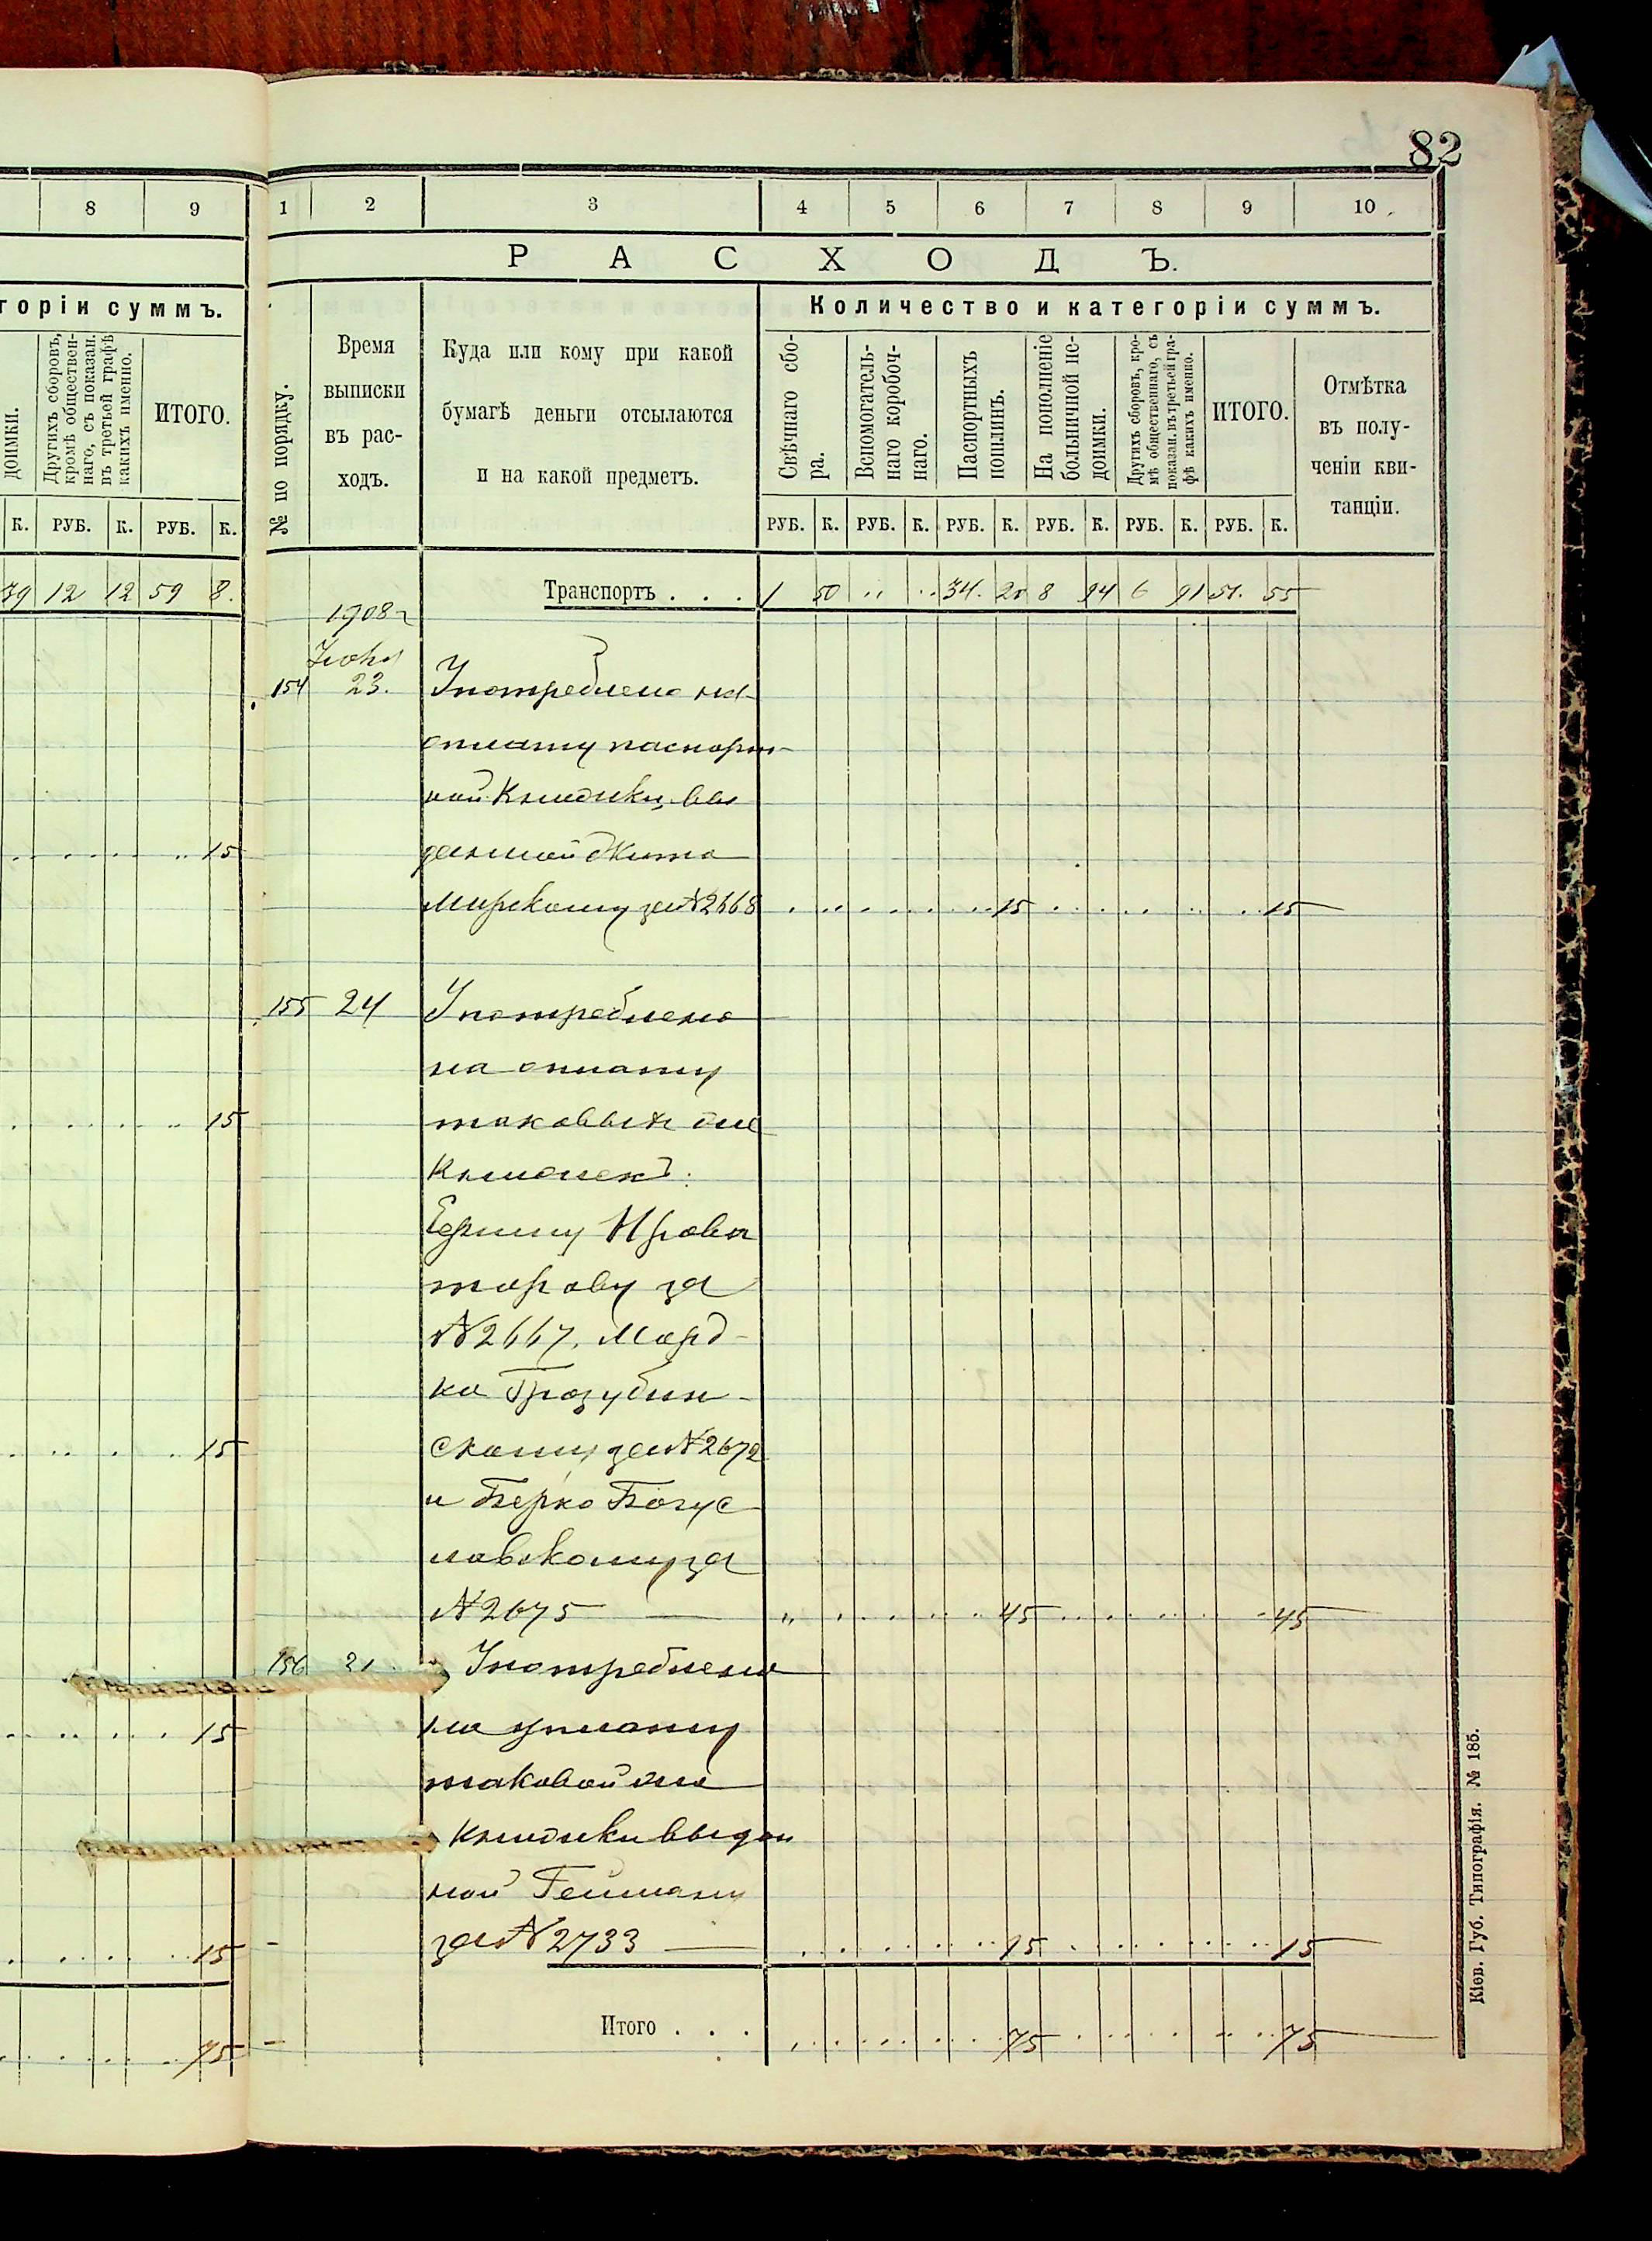 82
8 9
горіи суммъ.
доимки.
Другихъ сборовъ,
кромѣ обществен-
наго, съ показан.
въ третьей графѣ
какихъ именно.
ИТОГО.
К. РУБ. К. РУБ. К.
79 12 12 59 8.
15
15
15
15
15
75
1 2 3 4 5 6 7 8 9 10
РАСХОДЪ.
№ по порядку.
Время
выписки
въ рас-
ходъ.
Куда или кому при какой
бумагѣ деньги отсылаются
и на какой предметъ.
Количество и категоріи суммъ.
Свѣчнаго сбо-
ра.
Вспомогатель-
наго коробоч-
наго.
Паспортныхъ
пошлинъ.
На пополненіе
больничной не-
доимки.
Другихъ сборовъ, кро-
мѣ общественнаго, съ
показан. въ третьей гра-
фѣ какихъ именно.
ИТОГО.
Отмѣтка
въ полу-
ченіи кви-
танціи.
РУБ. К. РУБ. К. РУБ. К. РУБ. К. РУБ. К. РУБ. К.
Транспортъ . . . 1 50 34. 20 8 94 6 91 51. 55
1908 г
Іюня
154 23. Употреблено на
оплату паспорт-
ной Книжки, вы
данной Жито
мирскому за № 2668 15 15
155 24 Употреблено
на оплату
таковыхъ же
Книжекъ:
Ефиму
торову за
№ 2667, Морд-
ко Грозубин-
скому за № 2672
и Берко Богус
лавскому за
№ 2675 — 45 45
156 Употреблено
на уплату
таковой же
Книжки выдан
ной Гейману
за № 2733 — 15 15
Итого . . . 75 75
Кіев. Губ. Типографія. № 185.